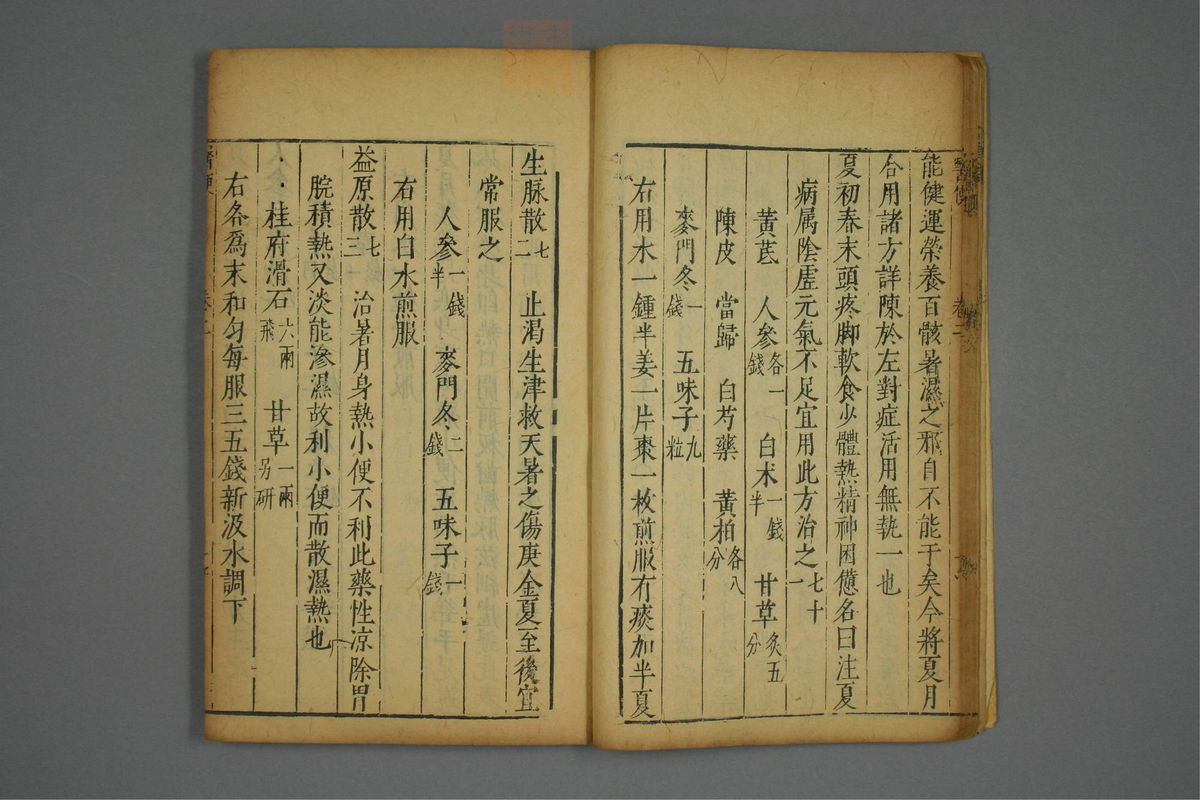 能健運榮養百骸暑濕之邪自不能于矣今將夏月
合用諸方詳陳於左對症活用無執一也
夏初春末頭疼脚軟食少體熱精神困憊名曰注夏
病属陰虛元氣不足宜用此方治之七十一
黄芪 人參各一錢 白术一錢半 甘草炙五分
陳皮 當歸 白芍藥 黄柏各八分
麥門冬一錢 五味子九粒
右用水一鍾半姜一片棗一枚煎服有痰加半夏
生脉散七二 止渴生津救天暑之傷庚金夏至後宜
常服之
人參一錢半 麥門冬二錢 五味子一錢
右用白水煎服
益原散七三 治暑月身熱小便不利此藥性凉除胃
脘積熱又淡能滲濕故利小便而散濕熱也
桂府滑石六兩飛 甘草一兩另研
右各爲末和匀每服三五錢新汲水調下